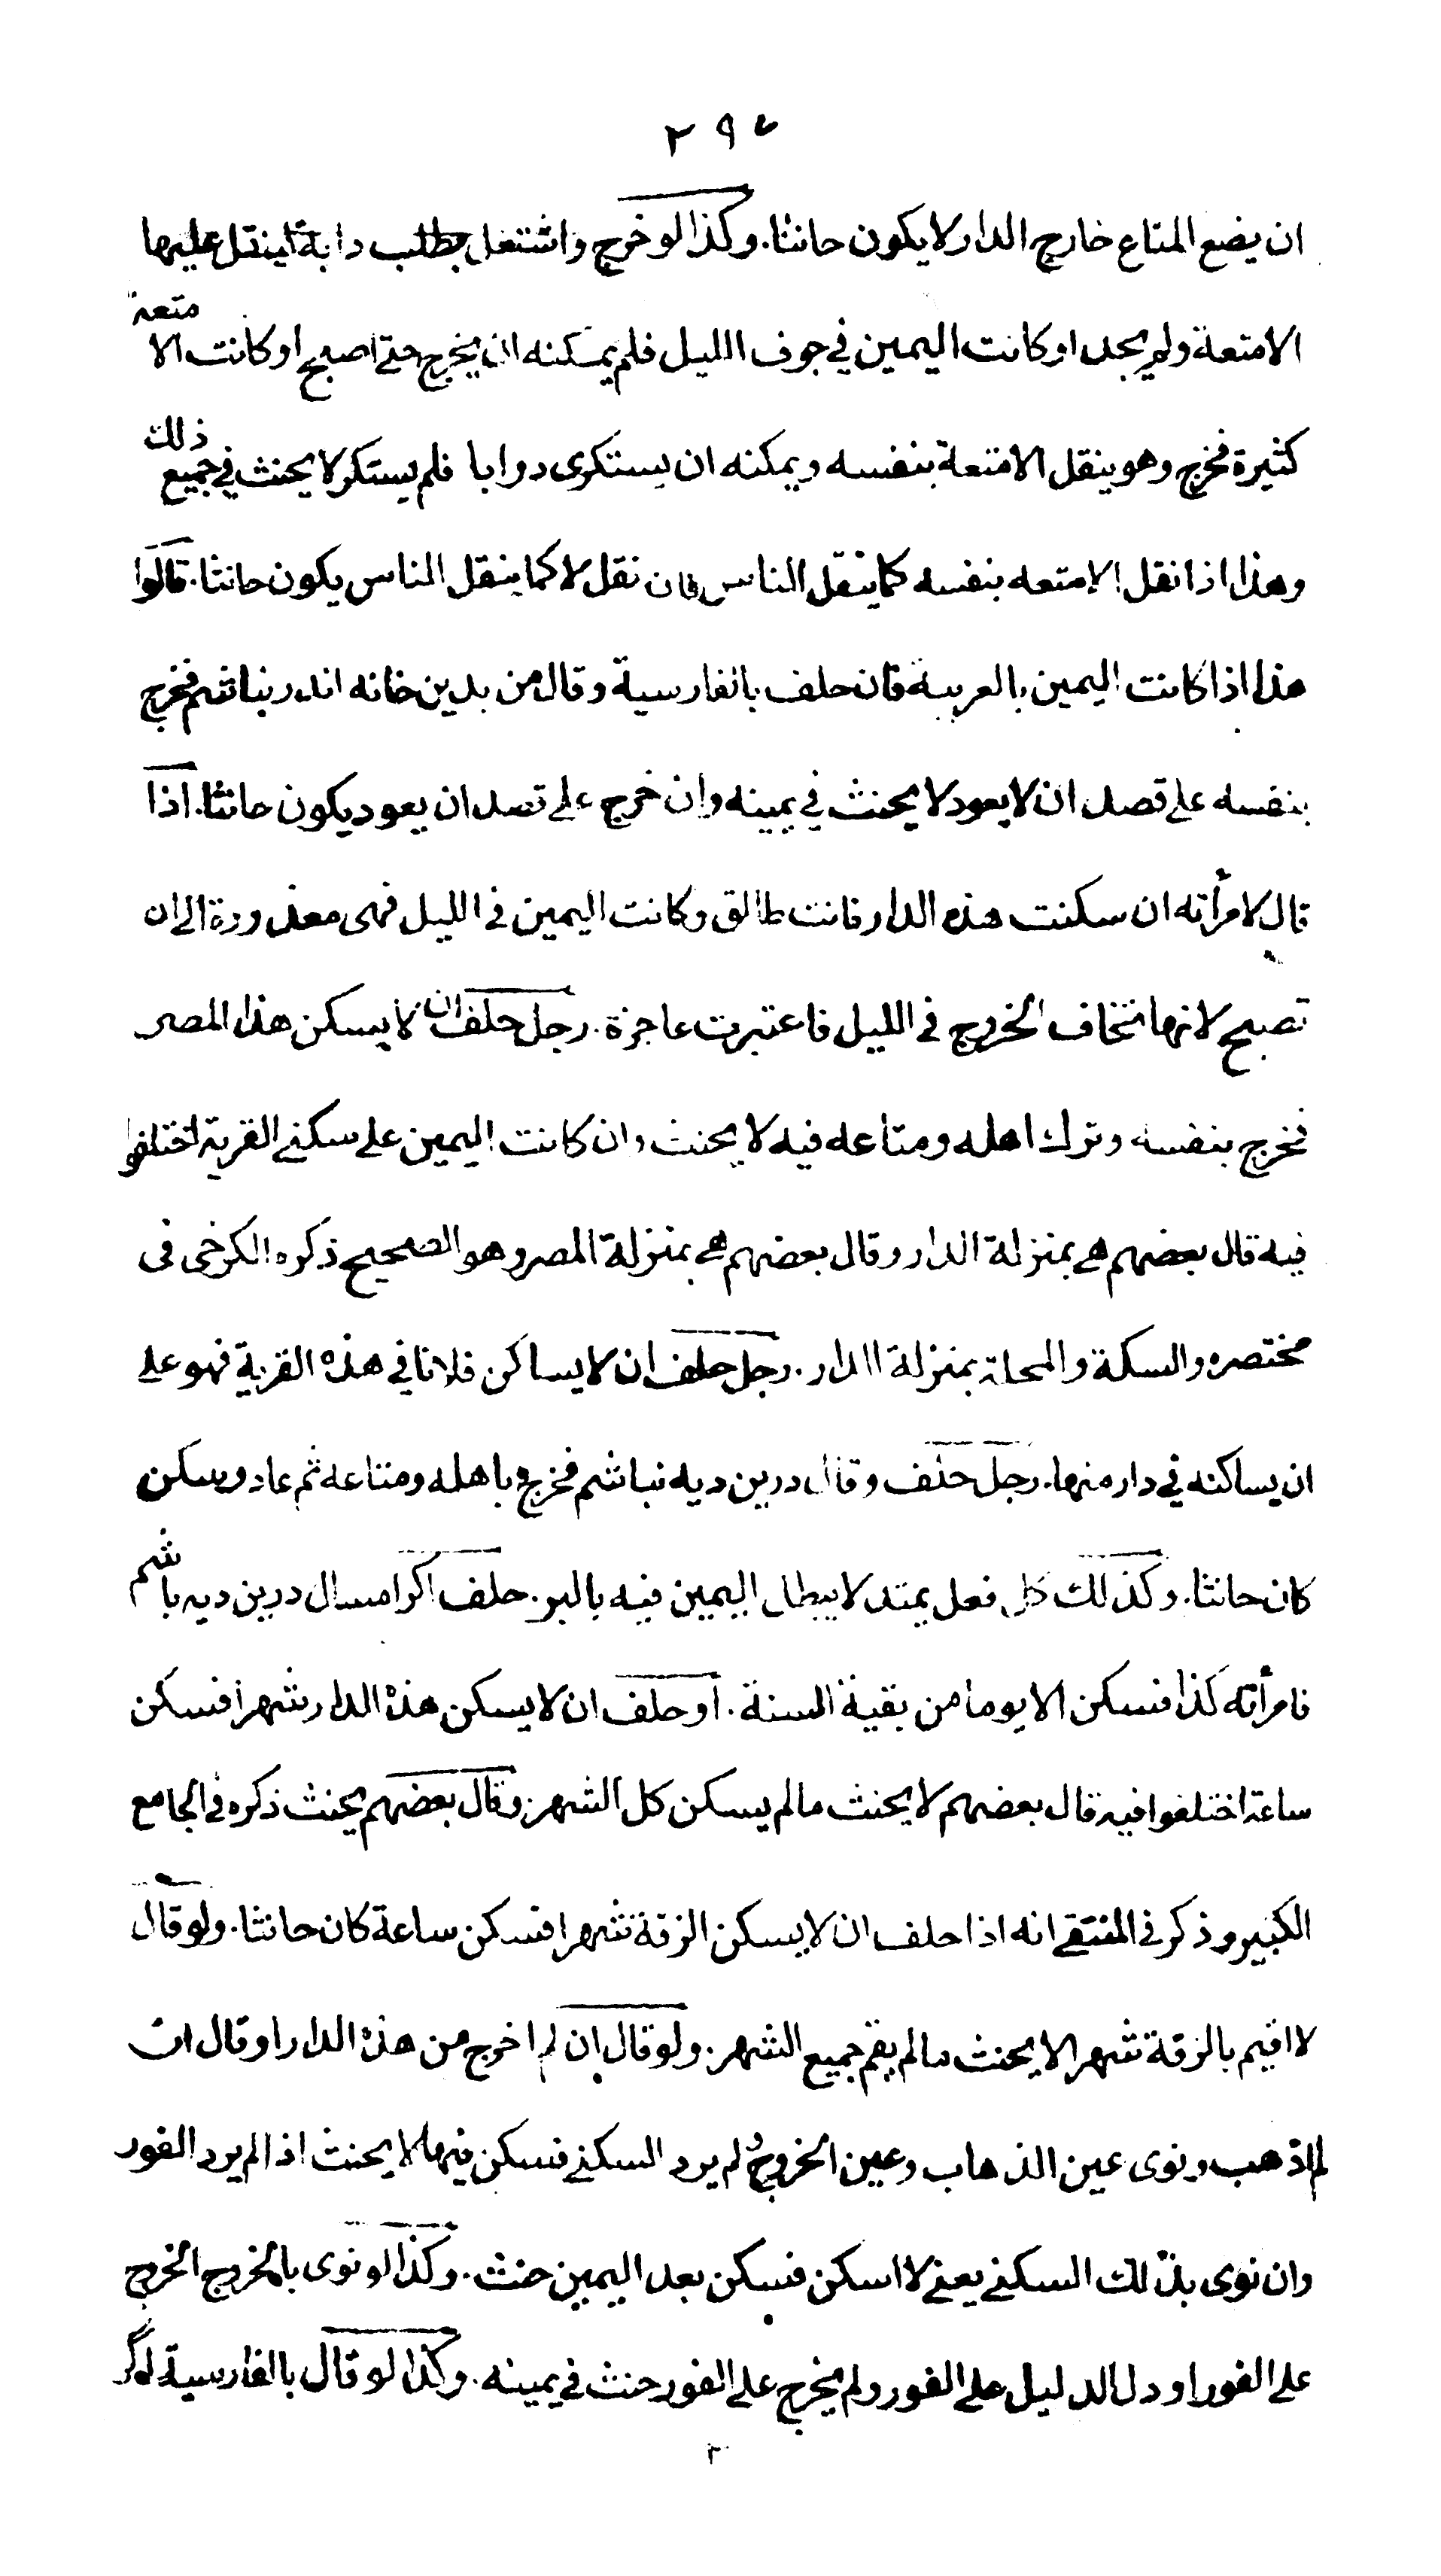 ٢٩٧
ان يضع المتاع خارج الدار لا يكون حانثا. وكذا لو خرج واشتغل بطلب دابة لينقل عليها
الامتعة ولم يجد او كانت اليمين في جوف الليل فلم يمكنه ان يخرج حتى اصبح او كانت الامتعة
كثيرة فخرج وهو ينقل الامتعة بنفسه ويمكنه ان يستكرى دوابا فلم يستكر لا يحنث في جميع ذلك
وهذا اذا نقل الامتعه بنفسه كما ينقل الناس فان نقل لا كما ينقل الناس يكون حانثا. قالوا
هذا اذا كانت اليمين بالعربية فان حلف بالفارسية وقال من بدين خانه اندر نباشم فخرج
بنفسه على قصد ان لا يعود لا يحنث في يمينه وان خرج على قصد ان يعود يكون حانثا. اذا
قال لامرأته ان سكنت هذه الدار فانت طالق وكانت اليمين في الليل فهى معذورة الى ان
تصبح لانها تخاف الخروج في الليل فاعتبرت عاجزة. رجل حلف ان لا يسكن هذا المصر
فخرج بنفسه وترك اهله ومتاعه فيه لا يحنث وان كانت اليمين على سكنى القرية اختلفوا
فيه قال بعضهم هي بمنزلة الدار وقال بعضهم هي بمنزلة المصر وهو الصحيح ذكره الكرخى فى
مختصره والسكة والمحلة بمنزلة الدار. رجل حلف ان لا يساكن فلانا في هذه القرية فهو على
ان يساكنه في دار منها. رجل حلف وقال درين ديه نباشم فخرج باهله ومتاعه ثم عاد وسكن
كان حانثا. وكذلك كل فعل يمتد لا يبطل اليمين فيه بالبر. حلف اكر امسال درين ديه باشم
فامرأته كذا فسكن الا يوما من بقية السنة. او حلف ان لا يسكن هذه الدار شهرا فسكن
ساعة اختلفوا فيه قال بعضهم لا يحنث ما لم يسكن كل الشهر. وقال بعضهم يحنث ذكره في الجامع
الكبير وذكر في المنتقى انه اذا حلف ان لا يسكن الرقة شهرا فسكن ساعة كان حانثا. ولو قال
لا اقيم بالرقة شهرا لا يحنث ما لم يقم جميع الشهر. ولو قال ان لم اخرج من هذه الدار او قال ان
لم اذهب ونوى عين الذهاب وعين الخروج ولم يرد السكنى فسكن فيها لا يحنث اذا لم يرد الفور
وان نوى بذلك السكنى يعنى لا اسكن فسكن بعد اليمين حنث. وكذا لو نوى بالخروج الخروج
على الفور او دل الدليل على الفور ولم يخرج على الفور حنث في يمينه. وكذا لو قال بالفارسية